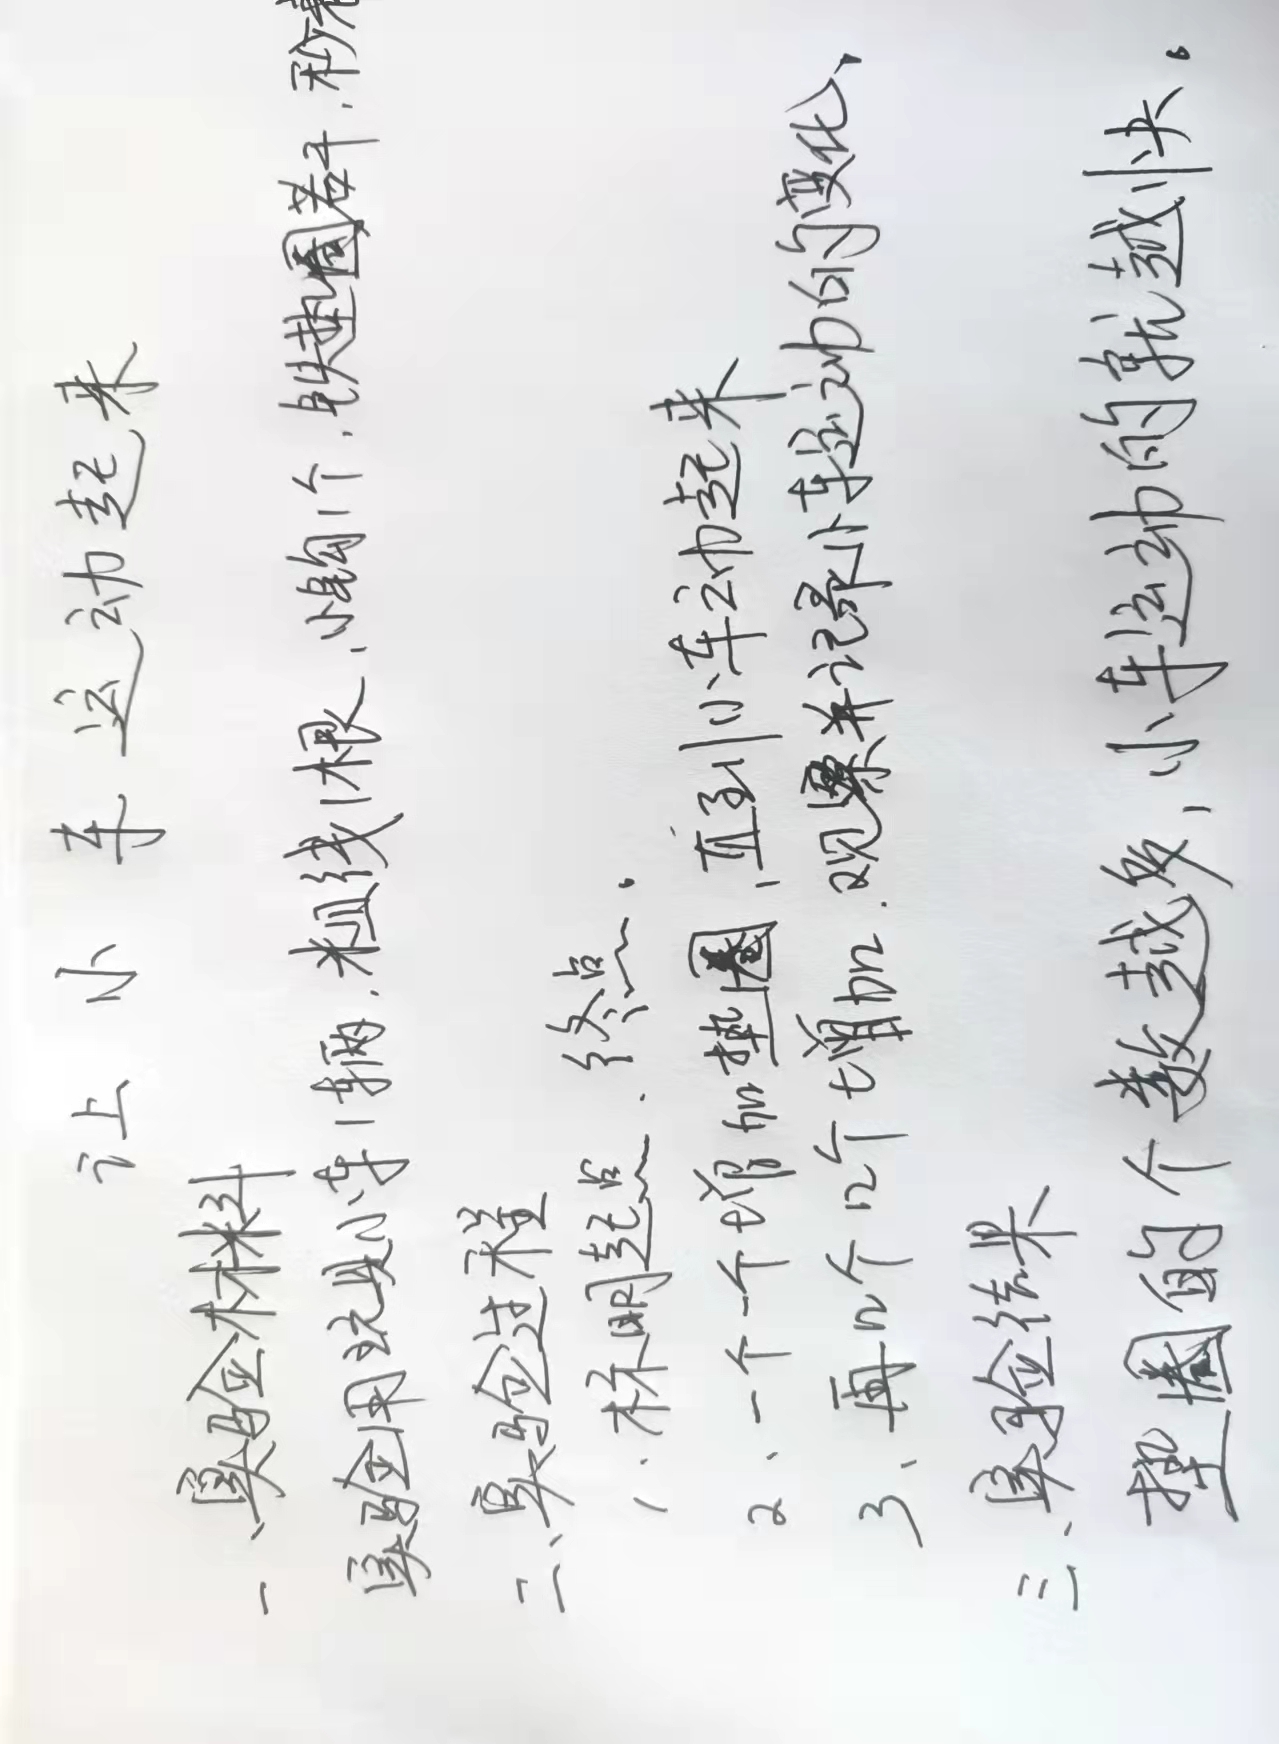 让小车运动起来
一、实验材料
实验用玩具小车1辆、粗线1根、小钩1个、铁垫圈若干、秒表
二、实验过程
1、标明起点、终点。
2、一个一个增加垫圈，直到小车动起来
3、再n个n个增加、观察并记录小车运动的变化、
三、实验结果
垫圈的个数越多，小车运动的就越快。